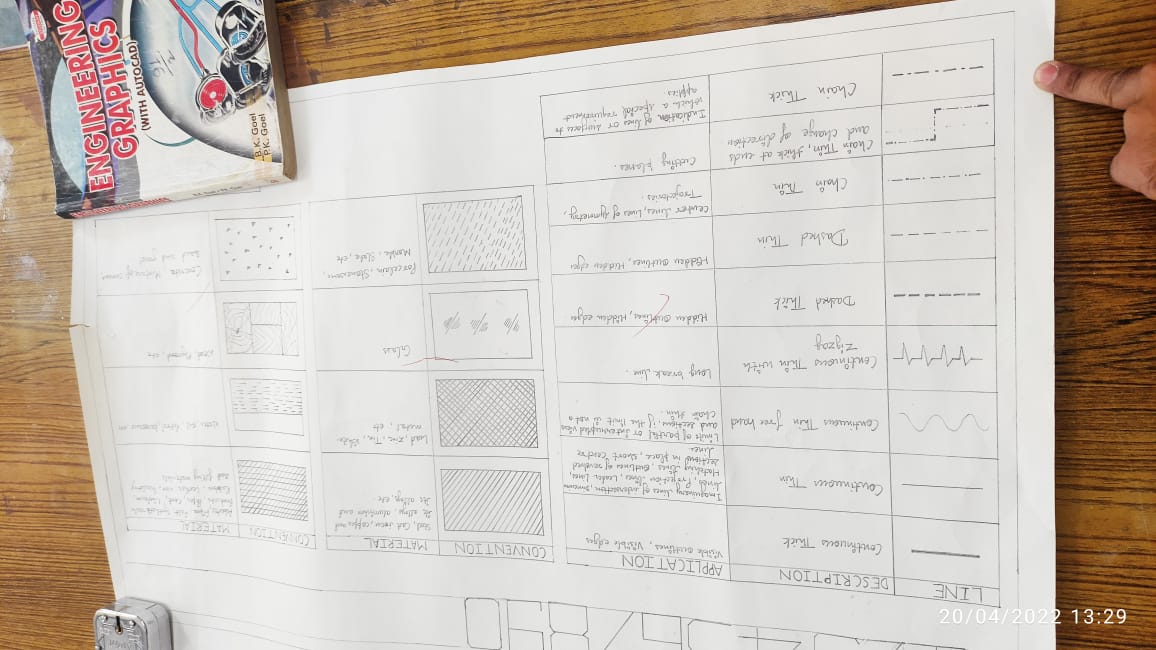 ENGINEERING
GRAPHICS
(WITH AUTOCAD)
B.K. Goel
P.K. Goel
LINE
DESCRIPTION
APPLICATION
Continuous Thick
Visible outlines, Visible edges
Continuous Thin
Imaginary lines of intersection,
lines, Projection lines, Leader lines,
Hatching lines, outlines of revolved
sections in place, short centre
lines
Continuous Thin free hand
Limits of partial or interrupted views
and sections, if the limit is not a
chain thin.
Continuous Thin with
Zigzag
Long break line.
Dashed Thick
Hidden outlines, Hidden edges
Dashed Thin
Hidden outlines, Hidden edges
Chain Thin
Center lines, Lines of symmetry,
Trajectories.
Chain Thin, thick at ends
and change of direction
Cutting planes.
Chain Thick
Indication of lines or surfaces to
which a special requirement
applies
CONVENTION
MATERIAL
Steel, Cast Iron, copper and
its alloys, aluminium and
its alloys, etc.
Lead, Zinc, Tin, White
metal, etc.
Glass
Porcelain, Stoneware,
Marble, Slate, etc
CONVENTION
MATERIAL
and filling materials
Wood, Plywood, etc.
Concrete
Sand and
20/04/2022 13:29